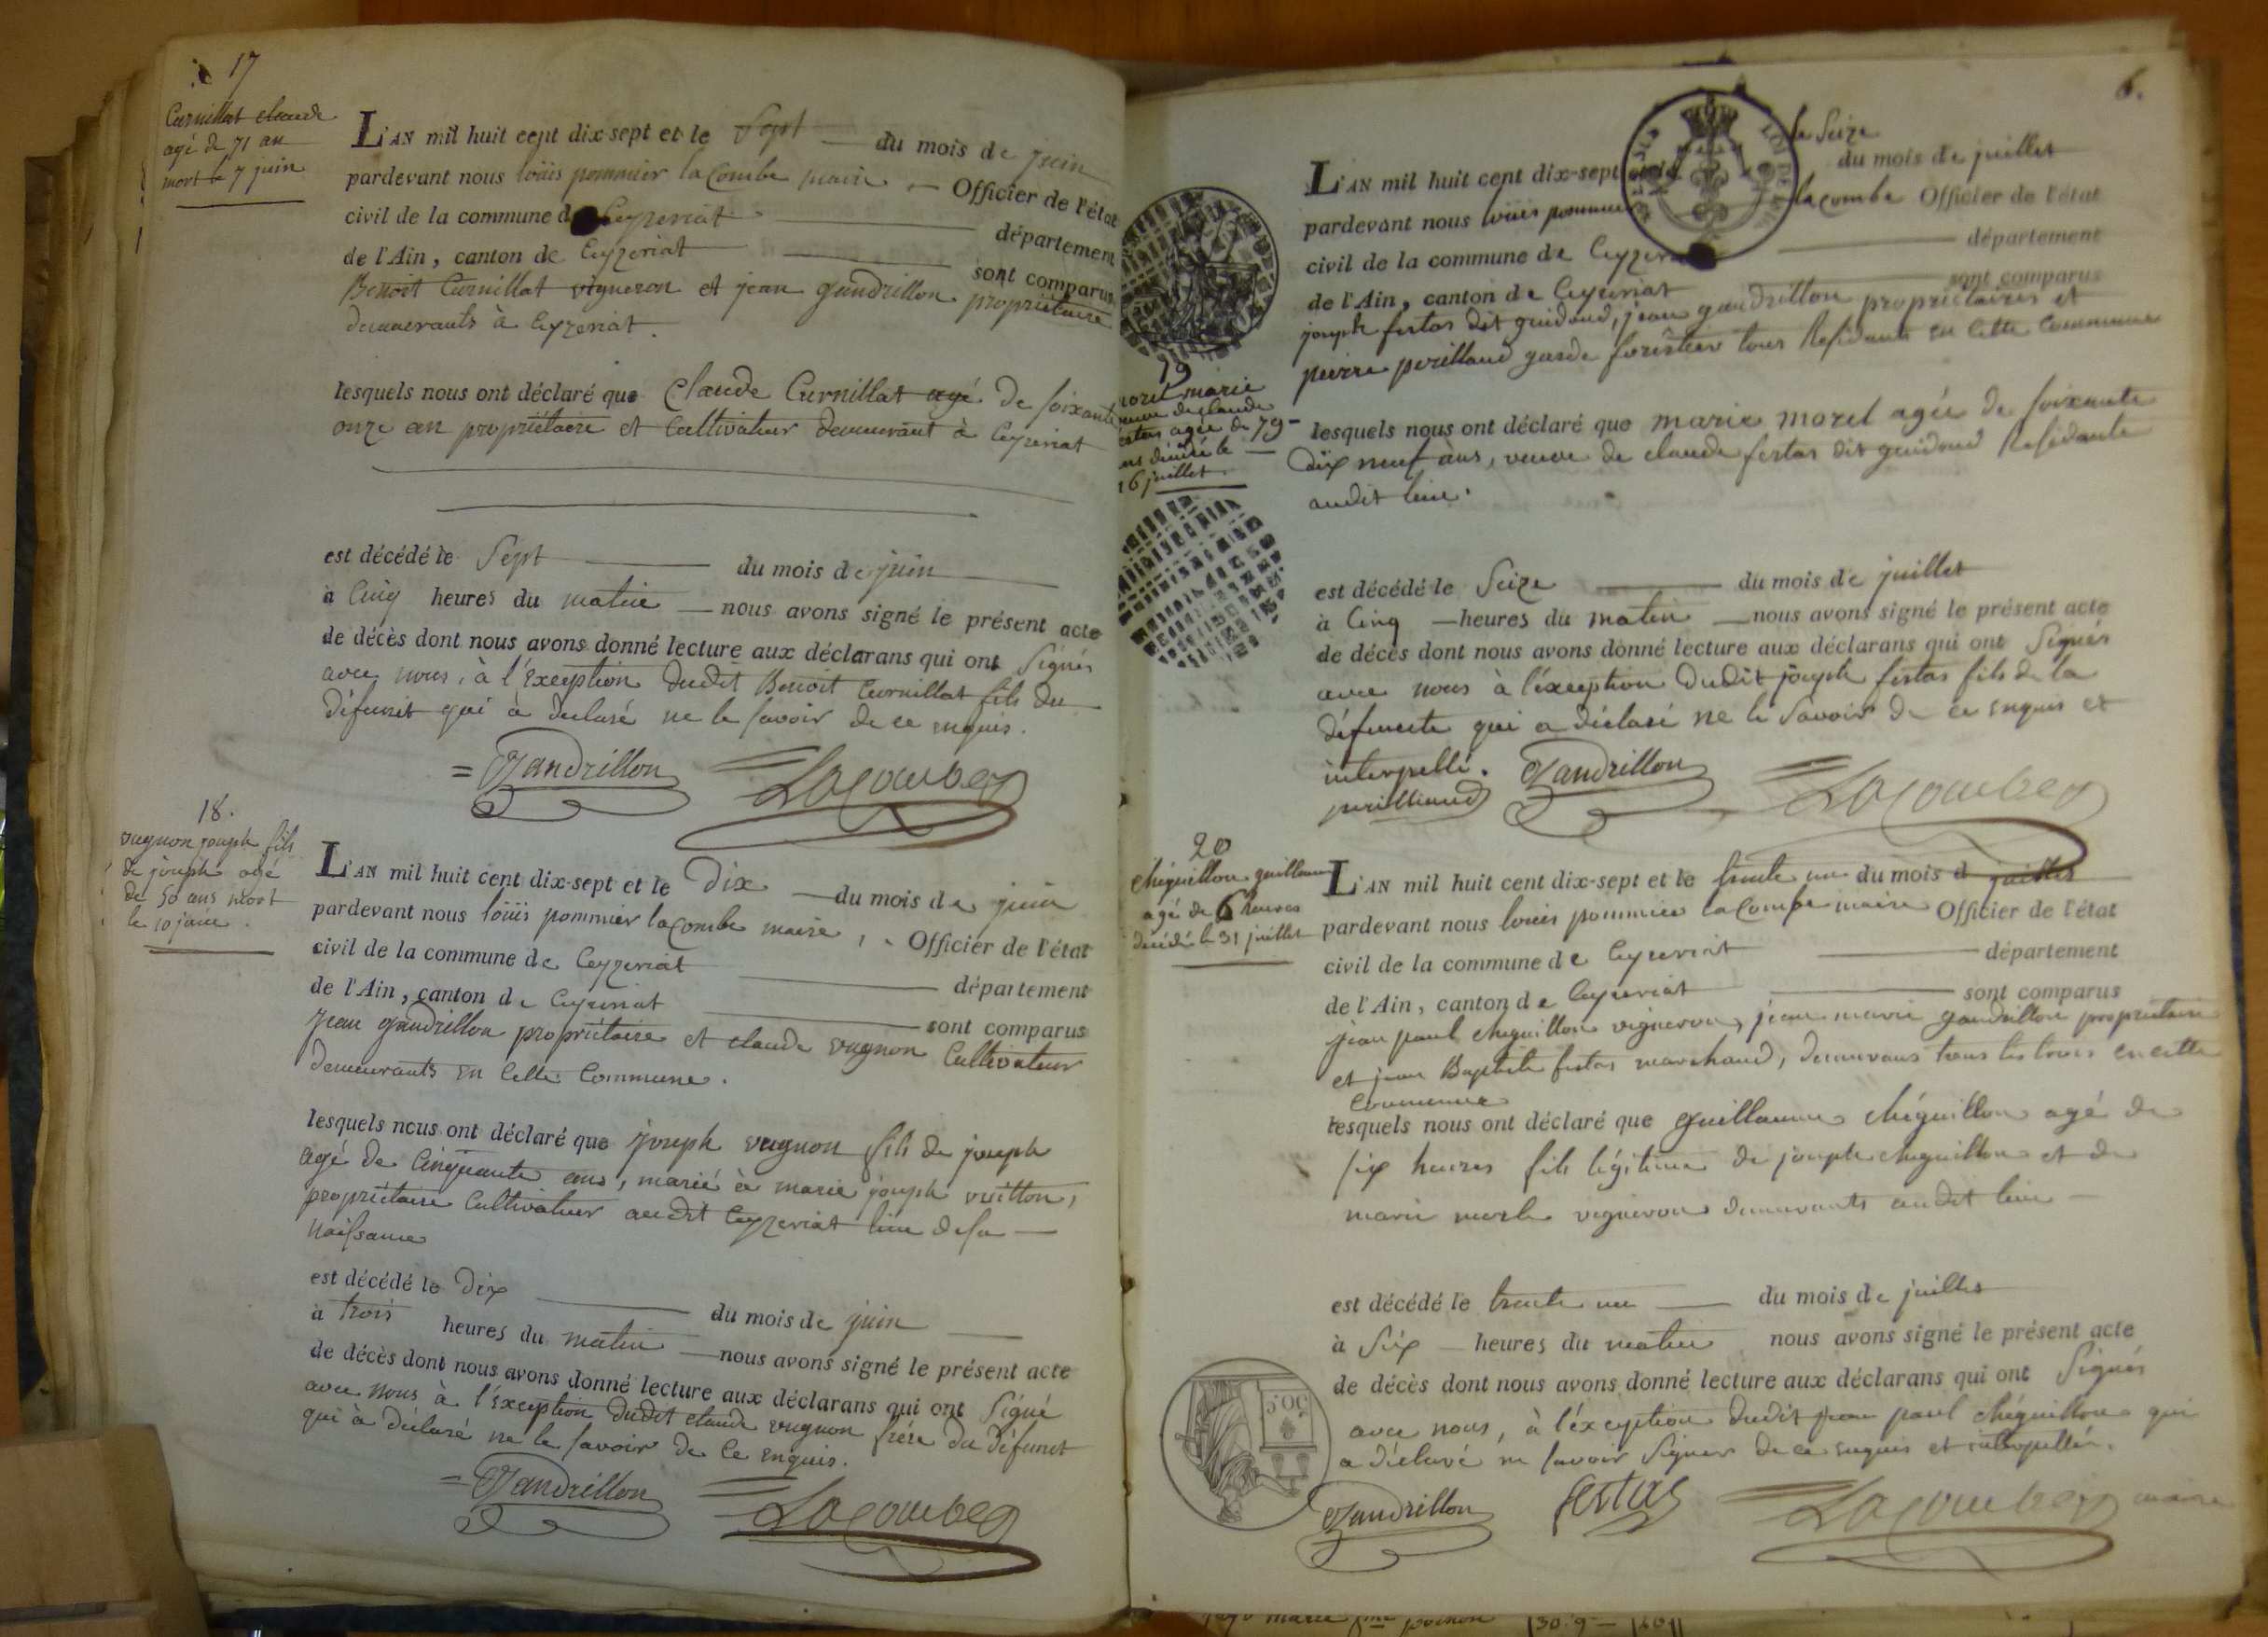 17
Curnillat claude
agé de 71 an
mort le 7 juin
L'AN mil huit cent dix-sept et le Sept du mois de juin
pardevant nous loüis pommier lacombe maire Officier de l'état
civil de la commune de Ceyzeriat département
de l'Ain, canton de Ceyzeriat sont comparus
Benoit Curnillat vigneron et jean gandrillon propriétaire
demeurants à Ceyzeriat.
lesquels nous ont déclaré que Claude Curnillat agé de soixante
onze an propriétaire et Cultivateur demeurant à Ceyzeriat
est décédé le Sept du mois de juin
à Cinq heures du matin nous avons signé le présent acte
de décès dont nous avons donné lecture aux déclarans qui ont Signés
avec nous, à l'éxception dudit Benoit Curnillat fils du
défunt qui à declaré ne le savoir de ce enquis.
Gandrillon Lacombe
18.
vugnon joseph fils
de joseph agé
de 50 ans mort
le 10 juin.
L'AN mil huit cent dix-sept et le Dix du mois de juin
pardevant nous loüis pommier lacombe maire, Officier de l'état
civil de la commune de Ceyzeriat département
de l'Ain, canton de Ceyzeriat sont comparus
Jean gandrillon propriétaire et claude vugnon Cultivateur
demeurants en Cette Commune.
lesquels nous ont déclaré que joseph vugnon fils de joseph
agé de Cinquante ans, marié à marie joseph vuitton,
propriétaire Cultivateur audit Ceyzeriat lieu de sa
naissance
est décédé le Dix du mois de juin
à trois heures du matin nous avons signé le présent acte
de décès dont nous avons donné lecture aux déclarans qui ont Signé
avec nous à l'éxception dudit claude vugnon frére du défunct
qui à déclaré ne le savoir de Ce enquis.
Gandrillon Lacombe
6.
19
morel marie
veuve de claude
festas agée de 79
ans décédée le
16 juillet
L'AN mil huit cent dix-sept et le le Seize du mois de juillet
pardevant nous loüis pommier lacombe Officier de l'état
civil de la commune de Ceyzeriat département
de l'Ain, canton de Ceyzeriat sont comparus
joseph festas dit guidoud, jean gandrillon propriétaires et
pierre perilland garde forêstier tous Residants en Cette Commune
lesquels nous ont déclaré que marie morel agée de soixante
dix neuf ans, veuve de claude festas dit guidoud Residante
audit lieu.
est décédé le Seize du mois de juillet
à Cinq heures du matin nous avons signé le présent acte
de décès dont nous avons donné lecture aux déclarans qui ont Signés
avec nous à l'éxception dudit joseph festas fils de la
défuncte qui a déclaré ne le Savoir de ce enquis et
interpellé. Gandrillon Lacombe
perilliand
20
chéguillon guillaume
agé de 6 heures
décédé le 31 juillet
L'AN mil huit cent dix-sept et le trente un du mois d juillet
pardevant nous louis pommier lacombe maire Officier de l'état
civil de la commune de Ceyzeriat département
de l'Ain, canton de Ceyzeriat sont comparus
jean paul cheguillon vigneron, jean marie gandrillon propriétaire
et jean Baptiste festas marchand, demeurans tous les trois en cette
Commune
lesquels nous ont déclaré que guillaume chéguillon agé de
six heures fils légitime de joseph cheguillon et de
marie merle vigneron demeurants audit lieu
est décédé le trente un du mois de juillet
à Six heures du matin nous avons signé le présent acte
de décès dont nous avons donné lecture aux déclarans qui ont Signés
avec nous, à l'éxception dudit jean paul chéguillon qui
a déclaré ne savoir Signer de ce enquis et interpellé.
Gandrillon festas Lacombe maire
50.C